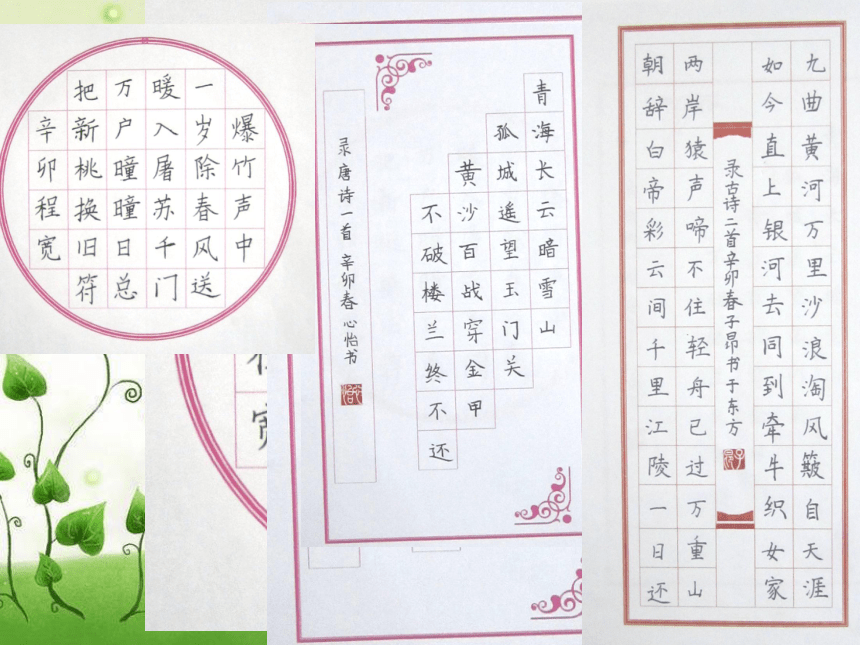 爆竹声中
一岁除春风送
暖入屠苏千门
万户曈曈日总
把新桃换旧符
辛卯程宽
青海长云暗雪山
孤城遥望玉门关
黄沙百战穿金甲
不破楼兰终不还
录唐诗一首 辛卯春 心怡书
九曲黄河万里沙浪淘风簸自天涯
如今直上银河去同到牵牛织女家
录古诗二首辛卯春子昂书于东方
两岸猿声啼不住轻舟已过万重山
朝辞白帝彩云间千里江陵一日还